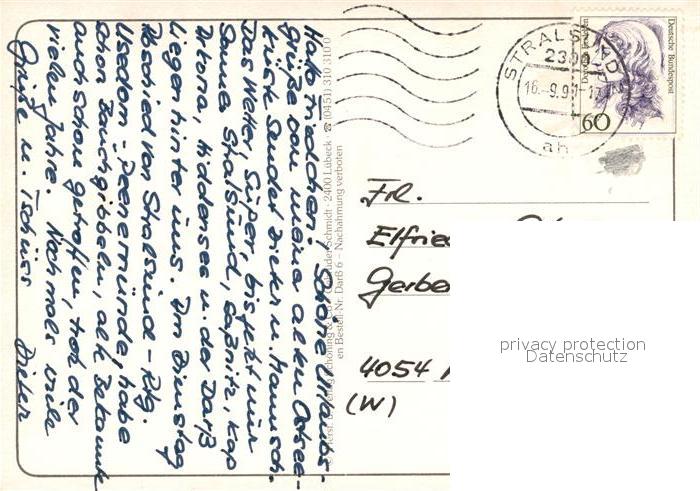 Hallo Friedchen! Schöne Urlaubs-
grüße von meiner alten Ostsee-
küste sendet Dieter u. Mannsch.
Das Wetter, Super, bis jetzt nur
Sonne. Stralsund, Saßnitz, Kap
Arkona, Hiddensee u. der Darß
liegen hinter uns. Am Dienstag
Abschied von Stralsund - Rtg.
Usedom - Peenemünde, habe
schon Bauchgibbeln, alte Bekannte
auch schon getroffen, trotz der
vielen Jahre. Nochmals viele
Grüße u. Tschüss Dieter
Schöning & Co + Gebrüder Schmidt · 2400 Lübeck · ☎ (0451) 310 310 0
en Bestell-Nr. Darß 6 – Nachahmung verboten
STRALSUND
2300
16.-9.91-17
ah
Deutsche Bundespost
60
Fr.
Elfrie
Gerbe
4054
(W)
privacy protection
Datenschutz